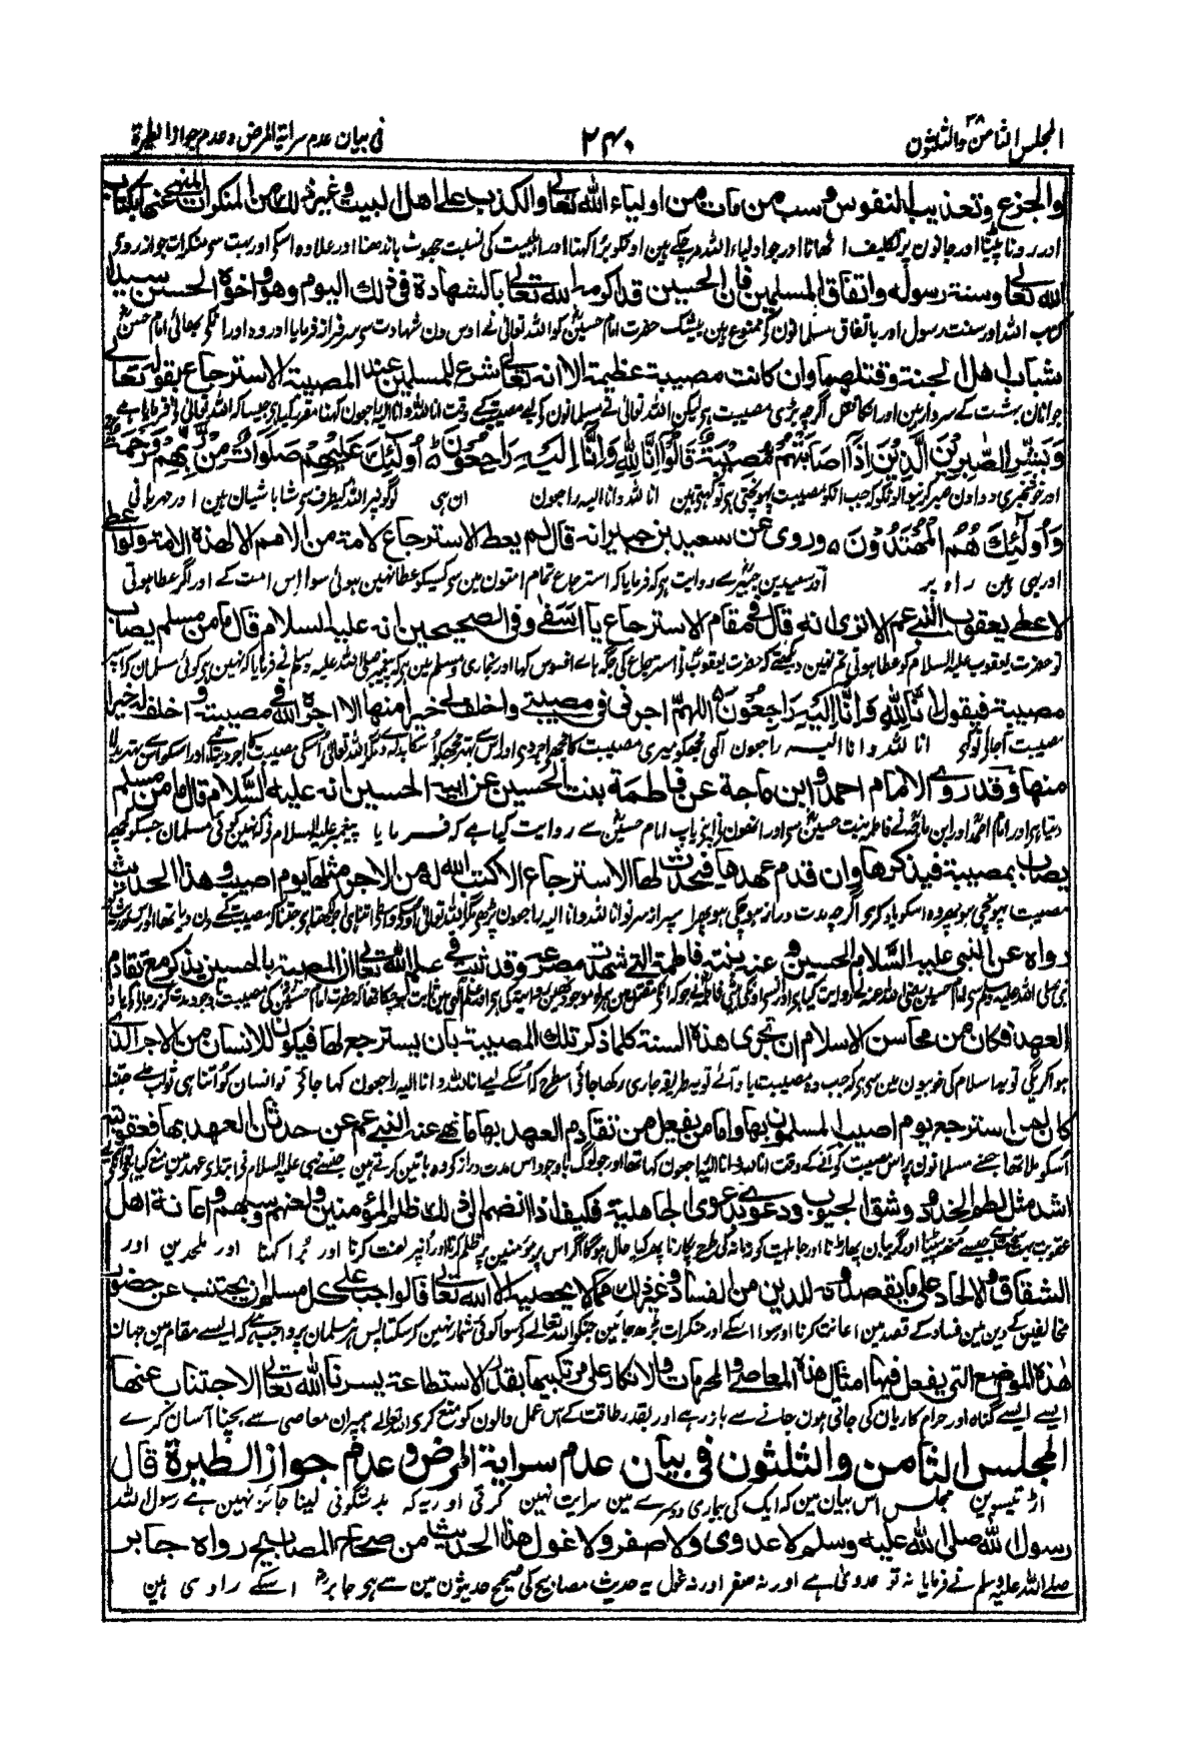 المجلس الثامن والثلثون ٣٨
٢٤٠
فی بیان عدم سرایة المرض وعدم جواز الطیرة
والجزع وتعذیب النفوس وسب من مات من اولیاء الله تعالی والکذب علی اهل البیت وغیر ذلك من المنکرات المنهی عنها بکتاب
اور رونا پیٹنا اور جانون پر تکلیف اٹھانا اور جو اولیاء اللہ مر چکے ہین اونکو برا کہنا اور اہلبیت کی نسبت جھوٹ باندھنا اور علاوہ اسکے اور بہت سی منکرات جو از روی
الله تعالی وسنة رسوله واتفاق المسلمین فان الحسین قد اکرمه الله تعالی بالشهادة فی ذلك الیوم وهو واخوه الحسن سیدا
کتاب اللہ اور سنت رسول اور باتفاق مسلمانون کے ممنوع ہین بیشک حضرت امام حسینؓ کو اللہ تعالی نے اوس دن شہادت سے سرفراز فرمایا اور وہ اور انکے بھائی امام حسنؓ
شباب اهل الجنة وقتلهما وان کانت مصیبة عظیمة الا انه تعالی شرع للمسلمین عند المصیبة الاسترجاع بقوله تعالی
جوانان بہشت کے سردار ہین اور انکا قتل اگرچہ بڑی مصیبت ہے لیکن اللہ تعالی نے مسلمانون کے لیے مصیبت کے وقت انا للہ وانا الیہ راجعون کہنا مقرر کیا ہے جیسا کہ اللہ تعالی نے فرمایا ہے
وَبَشِّرِ الصّٰبِرِیْنَ الَّذِیْنَ اِذَا اَصَابَتْهُمْ مُصِیْبَةٌ قَالُوْا اِنَّا لِلّٰهِ وَاِنَّا اِلَیْهِ رَاجِعُوْنَ اُولٰئِكَ عَلَیْهِمْ صَلَوَاتٌ مِّنْ رَّبِّهِمْ وَرَحْمَةٌ
اور خوشخبری دو اون صبر کرنیوالونکو کہ جب انکو مصیبت پہونچتی ہے تو کہتے ہین انا للہ وانا الیہ راجعون ان ہی لوگونپر اللہ کیطرف سے شاباشیان ہین اور مہربانی
وَاُولٰئِكَ هُمُ الْمُهْتَدُوْنَ وروی عن سعید بن جبیر انه قال لم یعط الاسترجاع لامة من الامم الا لهذه الامة ولو اعطی
اور یہی ہین راہ پر اور سعید بن جبیرؓ سے روایت ہے کہ فرمایا کہ استرجاع تمام امتون مین سے کسیکو عطا نہین ہوئی سوا اس امت کے اور اگر عطا ہوتی
لاعطی یعقوب النبی عم الا تری انه قال فی مقام الاسترجاع یا اسفی وفی الصحیحین انه علیه السلام قال ما من مسلم یصاب
تو حضرت یعقوب علیہ السلام کو عطا ہوتی تم نہین دیکھتے کہ حضرت یعقوب نے استرجاع کی جگہ ہائے افسوس کہا اور بخاری ومسلم مین ہے کہ پیغمبر صلی اللہ علیہ وسلم نے فرمایا کہ نہین ہے کوئی مسلمان کہ
مصیبة فیقول اِنَّا لِلّٰهِ وَاِنَّا اِلَیْهِ رَاجِعُوْنَ اللهم اجرنی فی مصیبتی واخلف لی خیرا منها الا اجره الله فی مصیبته واخلف له خیرا
مصیبت آجائے تو کہے انا للہ وانا الیہ راجعون الہی مجھکو میری مصیبت کا اجر دے اور اس سے بہتر مجھکو اسکا بدلہ دے مگر اللہ تعالی اسکی مصیبت کا اجر دیتا ہے اور اسکو اس سے بہتر بدلا
منها وقد روی الامام احمد وابن ماجة عن فاطمة بنت الحسین عن ابیه الحسین انه علیه السلام قال ما من مسلم
دیتا ہے اور امام احمد اور ابن ماجہ نے فاطمہ بنت حسینؓ سے اور انھون نے اپنے باپ امام حسینؓ سے روایت کیا ہے کہ فرمایا پیغمبر علیہ السلام نے کہ نہین کوئی مسلمان جسکو
یصاب بمصیبة فیذکرها وان قدم عهدها فیحدث لها الاسترجاع الا کتب الله له من الاجر مثلها یوم اصیب وهذا الحدیث
مصیبت پہونچی ہو پھر وہ اسکو یاد کرے اگرچہ مدت دراز ہو چکی ہو پھر از سر نو انا للہ وانا الیہ راجعون پڑھے مگر اللہ تعالی
رواه عن النبی علیه السلام الحسین وعنه بنته فاطمة التی شهدت مصرعه وقد ثبت فی علم الله تعالی ان المصیبة بالحسین یذکر مع تقادم
العهد فکان من محاسن الاسلام ان تجری هذه السنة کلما ذکر تلك المصیبة بان یسترجع لها فیکون للانسان من الاجر الذی
ہوا کریگی تو یہ اسلام کی خوبیون مین سے ہے کہ جب وہ مصیبت یاد آئے تو یہ طریقہ جاری رکھا جائے اسطرح کہ اسکے لیے انا للہ وانا الیہ راجعون کہا جائے تو انسان کو اتنا ہی ثواب ملے جتنا
کان لمن استرجع یوم اصیب المسلمون بها واما من یفعل من تقادم العهد بها ما نهی عنه النبی عم عن حدثان العهد بها فعقوبته
اشد مثل لطم الخدود وشق الجیوب ودعوی بدعوی الجاهلیة فکیف اذا انضم الی ذلك ظلم المؤمنین ولعنهم وسبهم واعانة اهل
الشقاق والالحاد علی ما یقصدونه للدین من الفساد وغیر ذلك مما لا یحصیه الا الله تعالی فالواجب علی کل مسلم ان یجتنب عن حضور
مخالفین کے دین مین فساد کے قصد مین اعانت کرنا اور سوا اسکے اور منکرات بڑھ جائین جنکو اللہ تعالی کے سوا کوئی شمار نہین کر سکتا پس ہر مسلمان پر واجب ہے کہ ایسے مقام مین جہان
هذه المواضع التی یفعل فیها امثال هذه المعاصی والمحرمات والانکار علی مرتکبیها بقدر الاستطاعة یسرنا الله تعالی الاجتناب عنها
ایسے ایسے گناہ اور حرام کاریان کی جاتی ہون جانے سے باز رہے اور بقدر طاقت کے اس عمل والون کو منع کرے اللہ تعالی ہمپر ان معاصی سے بچنا آسان کرے
المجلس الثامن والثلثون فی بیان عدم سرایة المرض وعدم جواز الطیرة قال
اڑتیسوین مجلس اس بیان مین کہ ایک کی بیماری دوسرے مین سرایت نہین کرتی اور یہ کہ بدشگونی لینا جائز نہین ہے رسول اللہ
رسول الله صلی الله علیه وسلم لا عدوی ولا صفر ولا غول هذا الحدیث من صحاح المصابیح رواه جابر
صلے اللہ علیہ وسلم نے فرمایا نہ تو عدوی ہے اور نہ صفر اور نہ غول یہ حدیث مصابیح کی صحیح حدیثون مین سے ہے جابرؓ اسکے راوی ہین